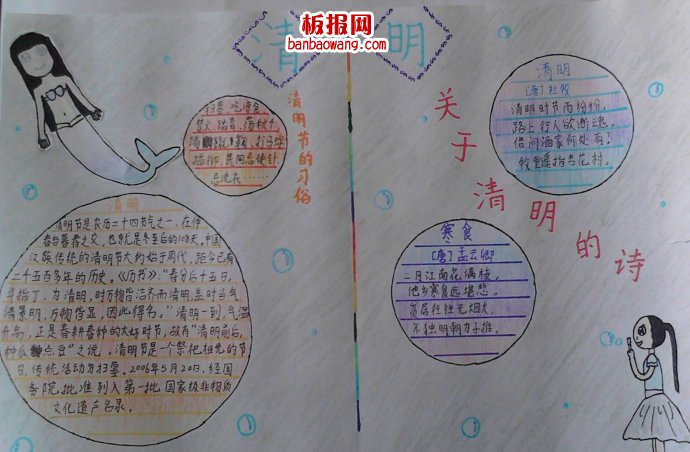 板报网
banbaowang.com
清明
扫墓、吃冷食
禁火、踏青、荡秋千
蹴鞠、打马球
插柳、民间忌使针
忌洗衣……
清明节的习俗
清明
清明节是农历二十四节气之一，在仲
春与暮春之交，也就是冬至后的108天。中国
汉族传统的清明节大约始于周代，距今已有
二千五百多年的历史。《历书》：“春分后十五日，
斗指丁，为清明，时万物皆洁齐而清明，盖时当气
清景明，万物皆显，因此得名。”清明一到，气温
升高，正是春耕春种的大好时节，故有“清明前后，
种瓜点豆”之说。清明节是一个祭祀祖先的节
日，传统活动为扫墓。2006年5月20日，经国
务院批准列入第一批国家级非物质
文化遗产名录。
关于清明的诗
清明
[唐]杜牧
清明时节雨纷纷，
路上行人欲断魂。
借问酒家何处有？
牧童遥指杏花村。
寒食
[唐]孟云卿
二月江南花满枝，
他乡寒食远堪悲。
贫居往往无烟火，
不独明朝为子推。